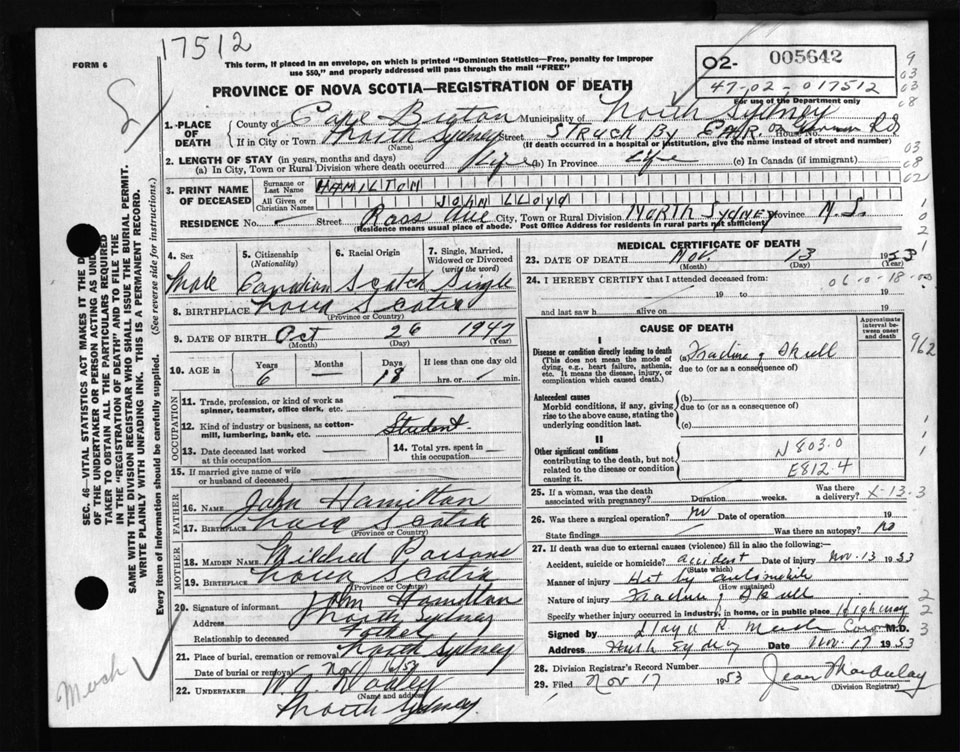 17512
FORM 6
This form, if placed in an envelope, on which is printed "Dominion Statistics—Free, penalty for improper
use $50," and properly addressed will pass through the mail "FREE"
02- 005642
47-02-017512
For use of the Department only
PROVINCE OF NOVA SCOTIA—REGISTRATION OF DEATH
1. PLACE OF DEATH
County of Cape Breton Municipality of North Sydney
If in City or Town North Sydney Street STRUCK BY CAR House No. Rd
(Name) (If death occurred in a hospital or institution, give the name instead of street and number)
2. LENGTH OF STAY (in years, months and days)
(a) In City, Town or Rural Division where death occurred Life (b) In Province Life (c) In Canada (if immigrant)
3. PRINT NAME OF DECEASED
Surname or Last Name HAMILTON
All Given or Christian Names JOHN LLOYD
RESIDENCE No. — Street Ross Ave City, Town or Rural Division NORTH SYDNEY Province N.S.
(Residence means usual place of abode. Post Office Address for residents in rural parts not sufficient)
4. Sex Male
5. Citizenship (Nationality) Canadian
6. Racial Origin Scotch
7. Single, Married, Widowed or Divorced (write the word) Single
8. BIRTHPLACE Nova Scotia
(Province or Country)
9. DATE OF BIRTH Oct 26 1947
(Month) (Day) (Year)
10. AGE in Years 6 Months Days 18 If less than one day old hrs. or min.
OCCUPATION
11. Trade, profession, or kind of work as spinner, teamster, office clerk, etc. —
12. Kind of industry or business, as cotton-mill, lumbering, bank, etc. Student
13. Date deceased last worked at this occupation —
14. Total yrs. spent in this occupation —
15. If married give name of wife or husband of deceased —
FATHER
16. Name John Hamilton
17. Birthplace Nova Scotia
(Province or Country)
MOTHER
18. Maiden Name Mildred Parsons
19. Birthplace Nova Scotia
(Province or Country)
20. Signature of informant John Hamilton
Address North Sydney
Relationship to deceased Father
21. Place of burial, cremation or removal North Sydney
Date of burial or removal Nov 16/53
22. UNDERTAKER
(Name and address)
North Sydney.
MEDICAL CERTIFICATE OF DEATH
23. DATE OF DEATH Nov. 13 1953
(Month) (Day) (Year)
24. I HEREBY CERTIFY that I attended deceased from:
19 to 19
and last saw h alive on 19
CAUSE OF DEATH
Approximate interval between onset and death
I
Disease or condition directly leading to death (a) Fracture of Skull
(This does not mean the mode of dying, e.g., heart failure, asthenia, etc. It means the disease, injury, or complication which caused death.)
due to (or as a consequence of)
Antecedent causes
Morbid conditions, if any, giving rise to the above cause, stating the underlying condition last.
(b)
due to (or as a consequence of)
(c)
II
Other significant conditions
contributing to the death, but not related to the disease or condition causing it.
N803.0
E812.4
25. If a woman, was the death associated with pregnancy? Duration weeks. Was there a delivery? X-13-3
26. Was there a surgical operation? no Date of operation 19
State findings Was there an autopsy? no
27. If death was due to external causes (violence) fill in also the following:
Accident, suicide or homicide? accident Date of injury Nov. 13 1953
(State which)
Manner of injury Hit by automobile
(How sustained)
Nature of injury Fracture of Skull
Specify whether injury occurred in industry, in home, or in public place Highway
Signed by M.D.
Address North Sydney Date Nov. 17 1953
28. Division Registrar's Record Number
29. Filed Nov 17 1953 Jean
(Division Registrar)
SEC. 46—VITAL STATISTICS ACT MAKES IT THE D
OF THE UNDERTAKER OR PERSON ACTING AS UND
TAKER TO OBTAIN ALL THE PARTICULARS REQUIRED
IN THE "REGISTRATION OF DEATH" AND TO FILE THE
SAME WITH THE DIVISION REGISTRAR WHO SHALL ISSUE THE BURIAL PERMIT.
WRITE PLAINLY WITH UNFADING INK. THIS IS A PERMANENT RECORD.
Every item of information should be carefully supplied. (See reverse side for instructions.)
962